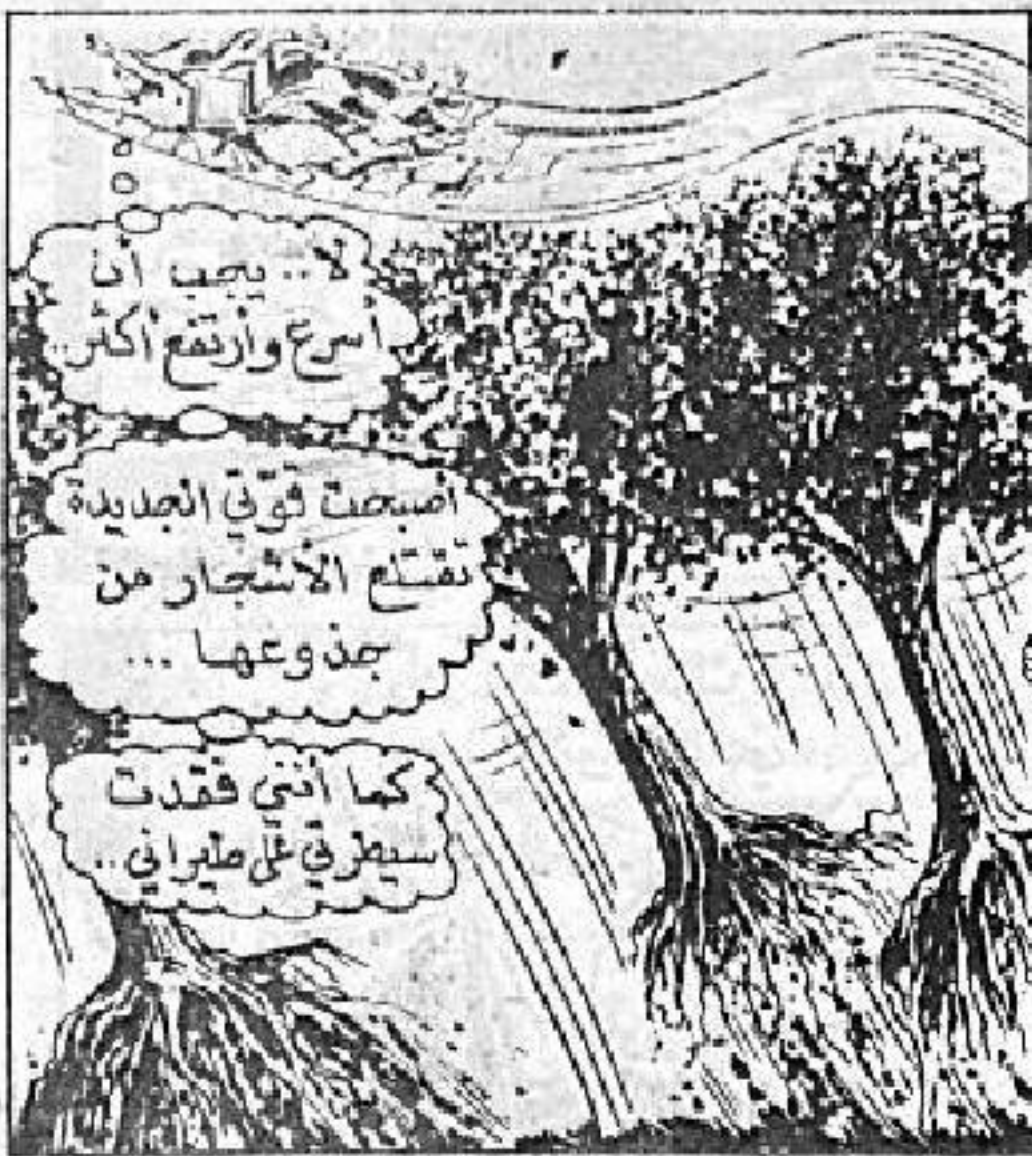 لا .. يجب أن
أسرع وأرتفع أكثر..
أصبحت قوّتي الجديدة
تقتلع الأشجار من
جذوعها ...
كما أنني فقدت
سيطرتي على طيراني..